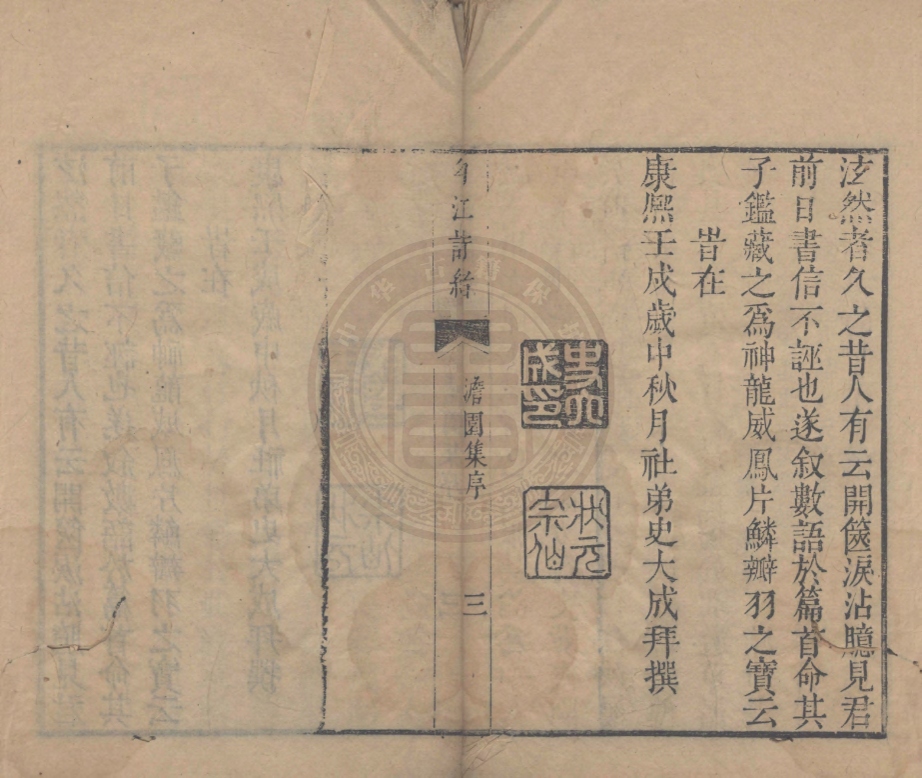 泫然者久之昔人有云開篋淚沾臆見君
前日書信不誣也遂叙數語於篇首命其
子鑑藏之爲神龍威鳳片鱗瓣羽之寶云
旹在
康熙壬戌歲中秋月社弟史大成拜撰
史大成印
狀元宗仙
江詩緒
澹園集序
三